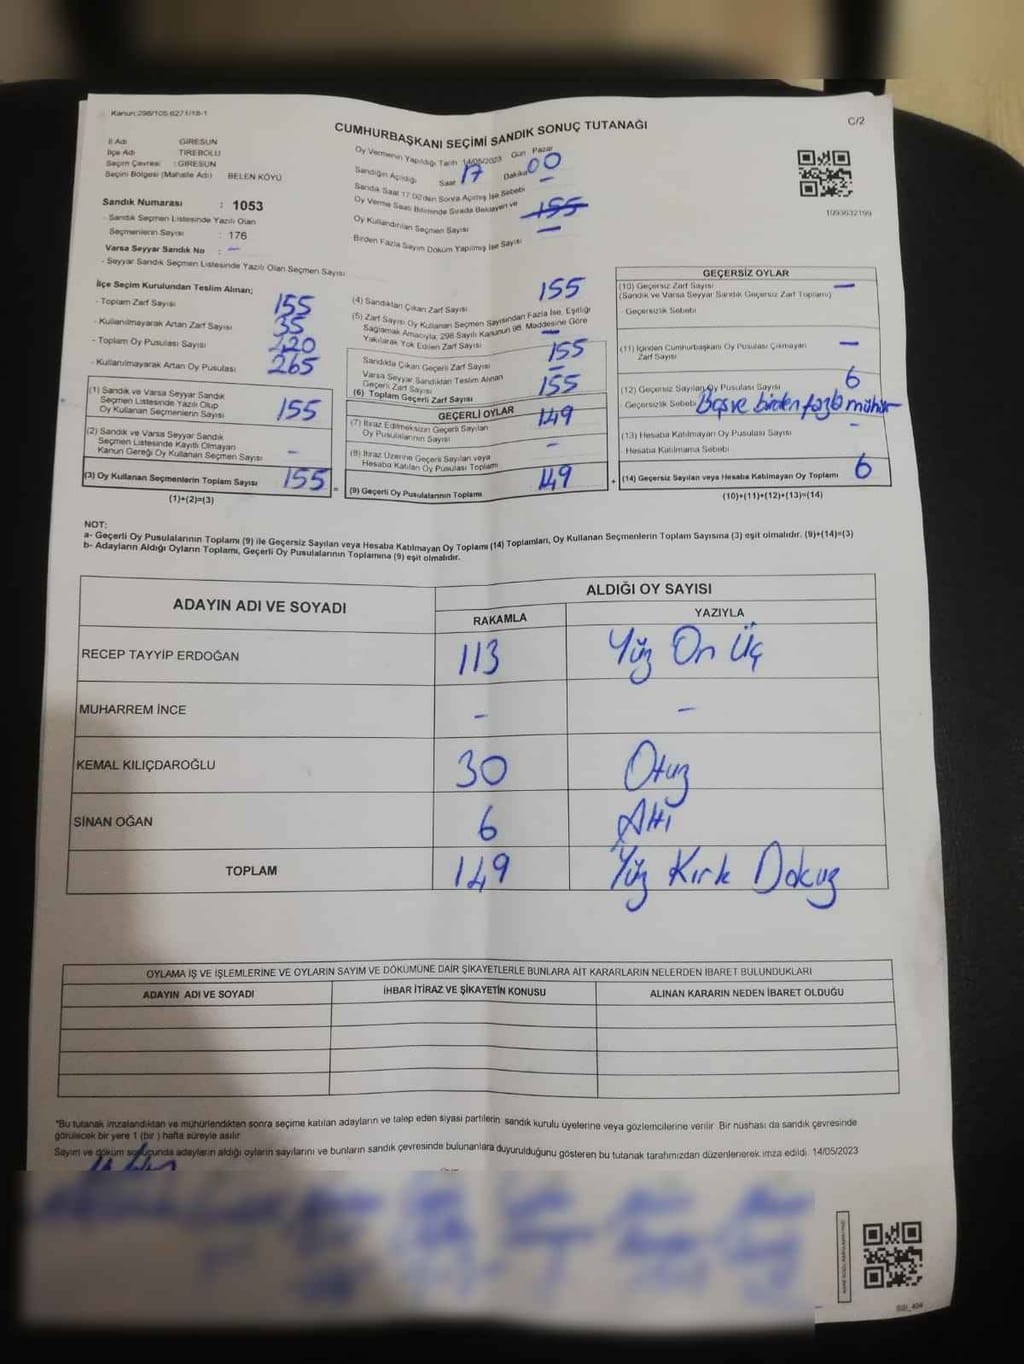 Kanun:298/105;6271/18-1
C/2
CUMHURBAŞKANI SEÇİMİ SANDIK SONUÇ TUTANAĞI
İl Adı GİRESUN
İlçe Adı TİREBOLU
Seçim Çevresi : GİRESUN
Seçim Bölgesi (Mahalle Adı) BELEN KÖYÜ
Sandık Numarası : 1053
- Sandık Seçmen Listesinde Yazılı Olan
Seçmenlerin Sayısı : 176
Varsa Seyyar Sandık No : -
- Seyyar Sandık Seçmen Listesinde Yazılı Olan Seçmen Sayısı:
Oy Vermenin Yapıldığı Tarih 14/05/2023 Gün Pazar
Sandığın Açıldığı Saat 17 Dakika 00
Sandık Saat 17:00'den Sonra Açılmış İse Sebebi -
Oy Verme Saati Bitiminde Sırada Bekleyen ve
Oy Kullandırılan Seçmen Sayısı 155
Birden Fazla Sayım Döküm Yapılmış İse Sayısı -
1093632199
İlçe Seçim Kurulundan Teslim Alınan;
- Toplam Zarf Sayısı 155
- Kullanılmayarak Artan Zarf Sayısı 35
- Toplam Oy Pusulası Sayısı
- Kullanılmayarak Artan Oy Pusulası 265
(1) Sandık ve Varsa Seyyar Sandık
Seçmen Listesinde Yazılı Olup
Oy Kullanan Seçmenlerin Sayısı 155
(2) Sandık ve Varsa Seyyar Sandık
Seçmen Listesinde Kayıtlı Olmayan
Kanun Gereği Oy Kullanan Seçmen Sayısı -
(3) Oy Kullanan Seçmenlerin Toplam Sayısı 155 =
(1)+(2)=(3)
(4) Sandıktan Çıkan Zarf Sayısı 155
(5) Zarf Sayısı Oy Kullanan Seçmen Sayısından Fazla İse, Eşitliği
Sağlamak Amacıyla, 298 Sayılı Kanunun 98. Maddesine Göre
Yakılarak Yok Edilen Zarf Sayısı -
Sandıkta Çıkan Geçerli Zarf Sayısı 155
Varsa Seyyar Sandıktan Teslim Alınan
Geçerli Zarf Sayısı -
(6) Toplam Geçerli Zarf Sayısı 155
GEÇERLİ OYLAR
(7) İtiraz Edilmeksizin Geçerli Sayılan
Oy Pusulalarının Sayısı 149
(8) İtiraz Üzerine Geçerli Sayılan veya
Hesaba Katılan Oy Pusulası Toplamı -
(9) Geçerli Oy Pusulalarının Toplamı 149 +
GEÇERSİZ OYLAR
(10) Geçersiz Zarf Sayısı -
(Sandık ve Varsa Seyyar Sandık Geçersiz Zarf Toplamı)
Geçersizlik Sebebi
(11) İçinden Cumhurbaşkanı Oy Pusulası Çıkmayan
Zarf Sayısı -
(12) Geçersiz Sayılan Oy Pusulası Sayısı 6
Geçersizlik Sebebi Boş ve birden fazla mühür
(13) Hesaba Katılmayan Oy Pusulası Sayısı -
Hesaba Katılmama Sebebi
(14) Geçersiz Sayılan veya Hesaba Katılmayan Oy Toplamı 6
(10)+(11)+(12)+(13)=(14)
NOT:
a- Geçerli Oy Pusulalarının Toplamı (9) ile Geçersiz Sayılan veya Hesaba Katılmayan Oy Toplamı (14) Toplamları, Oy Kullanan Seçmenlerin Toplam Sayısına (3) eşit olmalıdır. (9)+(14)=(3)
b- Adayların Aldığı Oyların Toplamı, Geçerli Oy Pusulalarının Toplamına (9) eşit olmalıdır.
ADAYIN ADI VE SOYADI ALDIĞI OY SAYISI
RAKAMLA YAZIYLA
RECEP TAYYİP ERDOĞAN 113 Yüz On Üç
MUHARREM İNCE - -
KEMAL KILIÇDAROĞLU 30 Otuz
SİNAN OĞAN 6 Altı
TOPLAM 149 Yüz Kırk Dokuz
OYLAMA İŞ VE İŞLEMLERİNE VE OYLARIN SAYIM VE DÖKÜMÜNE DAİR ŞİKAYETLERLE BUNLARA AİT KARARLARIN NELERDEN İBARET BULUNDUKLARI
ADAYIN ADI VE SOYADI İHBAR İTİRAZ VE ŞİKAYETİN KONUSU ALINAN KARARIN NEDEN İBARET OLDUĞU
*Bu tutanak imzalandıktan ve mühürlendikten sonra seçime katılan adayların ve talep eden siyasi partilerin sandık kurulu üyelerine veya gözlemcilerine verilir. Bir nüshası da sandık çevresinde
görülecek bir yere 1 (bir) hafta süreyle asılır.
Sayım ve döküm sonucunda adayların aldığı oyların sayılarını ve bunların sandık çevresinde bulunanlara duyurulduğunu gösteren bu tutanak tarafımızdan düzenlenerek imza edildi. 14/05/2023